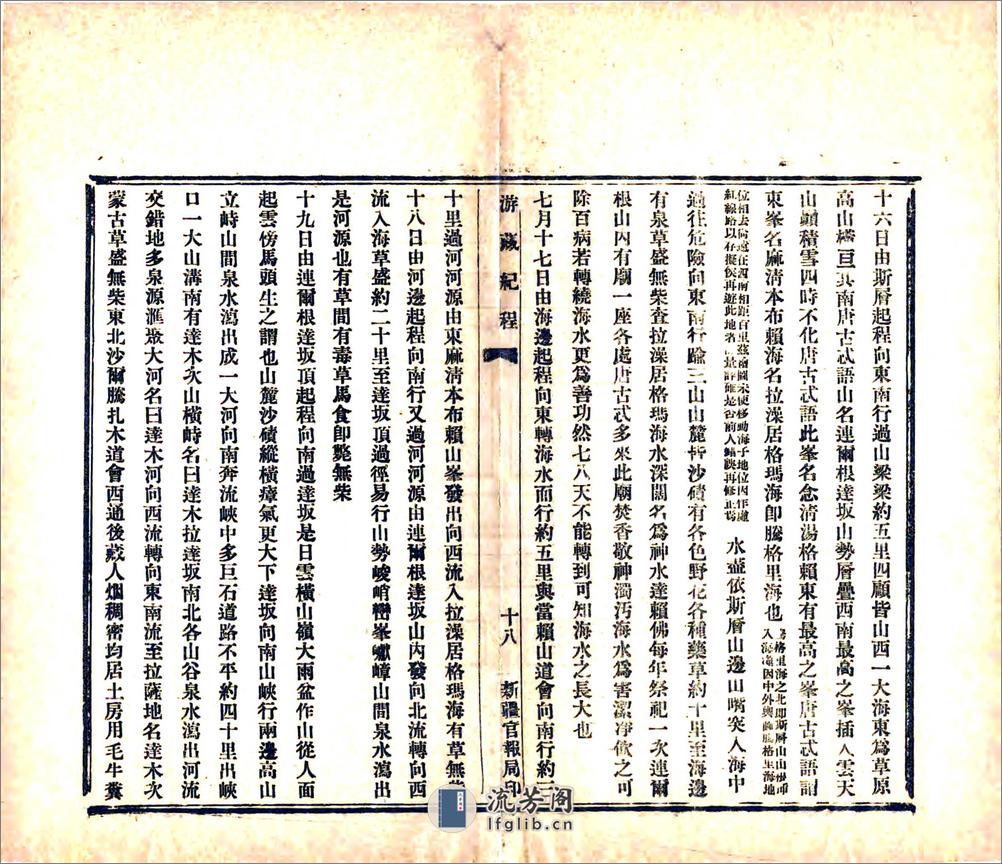 十六日由斯層起程向東南行過山梁梁約五里四顧皆山西一大海東爲草原
高山橫亘其南唐古忒語山名連爾根達坂山勢層疊西南最高之峯插入雲天
山顚積雪四時不化唐古忒語此峯名念清湯格賴東有最高之峯唐古忒語謂
東峯名麻清本布賴海名拉澡居格瑪海卽騰格里海也
騰格里海之北卽斯層山山
入海灣因中外輿圖騰格里海地
位相去尙遠在西南相距百里茲繪圖未便移動海子地位因作
紅線路以存擬俟再遊此地者
水盡依斯層山邊山嘴突入海中
過往危險向東南行踰三山山麓皆沙磧有各色野花各種藥草約十里至海邊
有泉草盛無柴查拉澡居格瑪海水深闊名爲神水達賴佛每年祭祀一次連爾
根山內有廟一座各處唐古忒多來此廟焚香敬神濁汚海水爲害潔凈飮之可
除百病若轉繞海水更爲善功然七八天不能轉到可知海水之長大也
七月十七日由海邊起程向東轉海水而行約五里與當賴山道會向南行約三
游藏紀程
十八
新疆官報局印
十里過河河源由東麻清本布賴山峯發出向西流入拉澡居格瑪海有草無柴
十八日由河邊起程向南行又過河河源由連爾根達坂山內發向北流轉向西
流入海草盛約二十里至達坂頂過徑易行山勢峻峭巒峯巘嶂山間泉水瀉出
是河源也有草間有毒草馬食卽斃無柴
十九日由連爾根達坂頂起程向南過達坂是日雲橫山嶺大雨盆作山從人面
起雲傍馬頭生之謂也山麓沙磧縱橫瘴氣更大下達坂向南山峽行兩邊高山
立峙山間泉水瀉出成一大河向南奔流峽中多巨石道路不平約四十里出峽
口一大山溝南有達木次山橫峙名曰達木拉達坂南北各山谷泉水瀉出河流
交錯地多泉源滙衆大河名曰達木河向西流轉向東南流至拉薩地名達木次
蒙古草盛無柴東北沙爾騰扎木道會西通後藏人烟稠密均居土房用毛牛糞
流芳阁
lfglib.cn